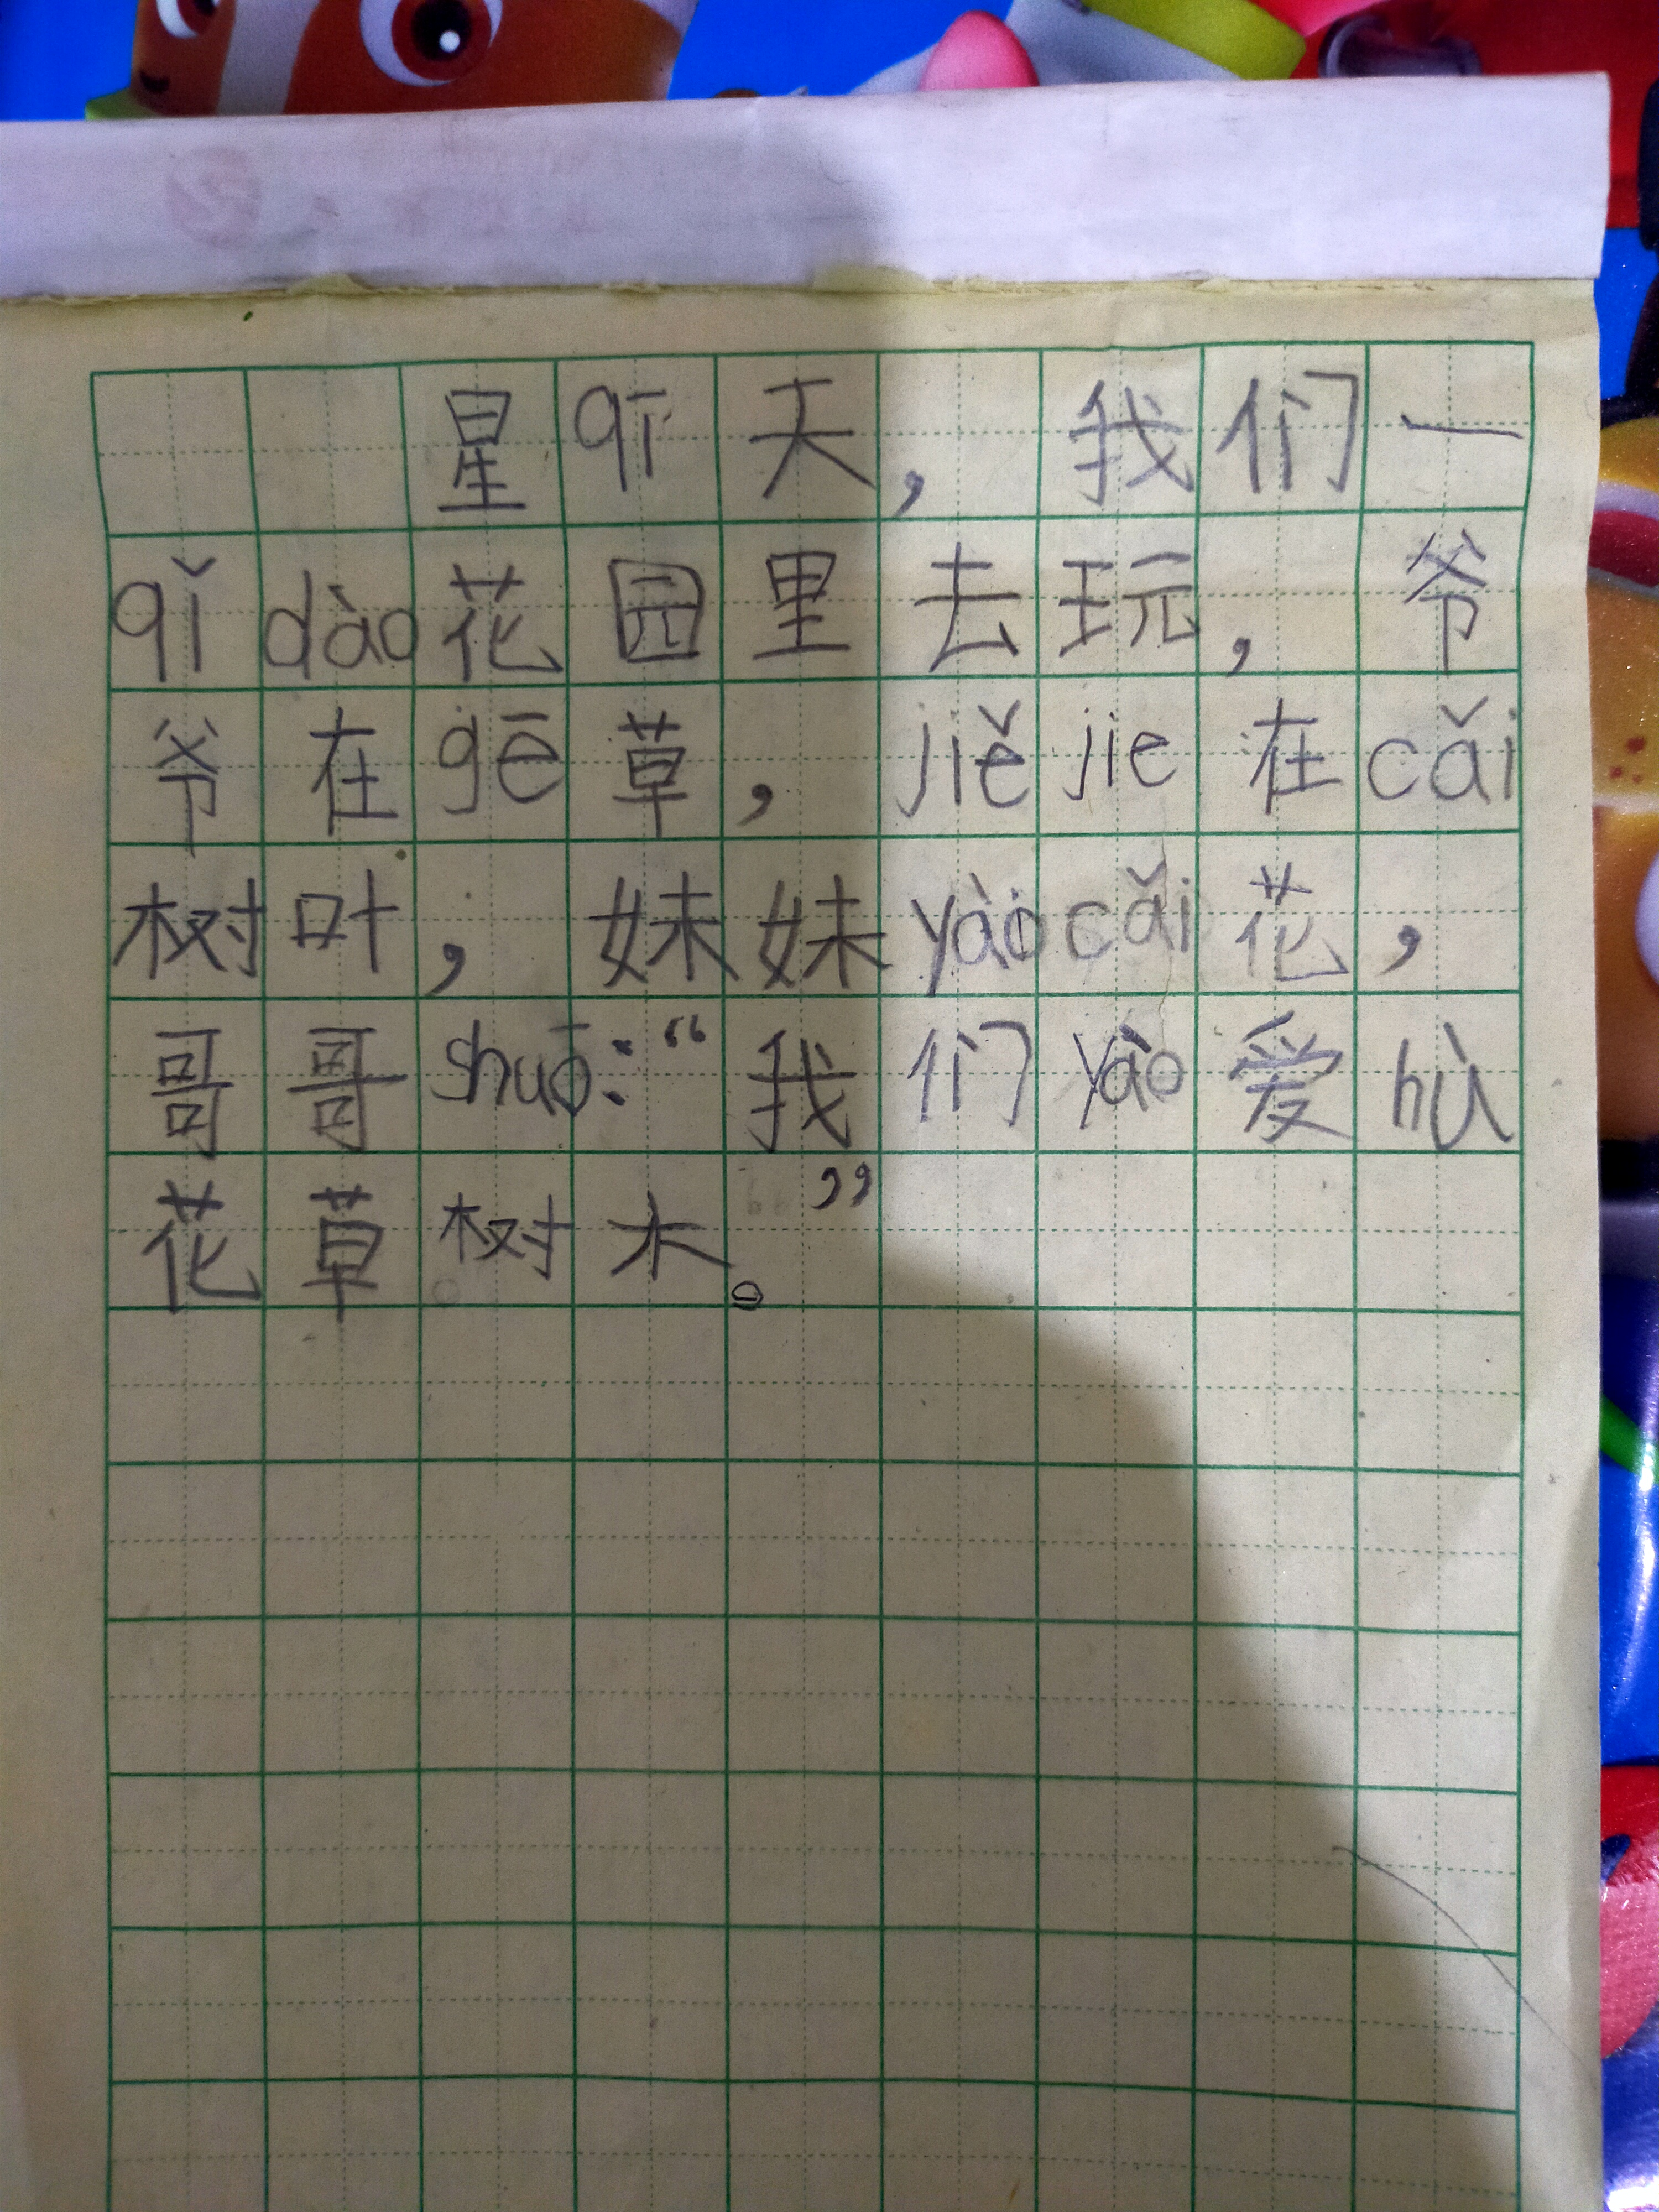 星qī天，我们一
qǐdào花园里去玩，爷
爷在gē草，jiějie在cǎi
树叶，妹妹yàocǎi花，
哥哥shuō：“我们yào爱hù
花草树木。”